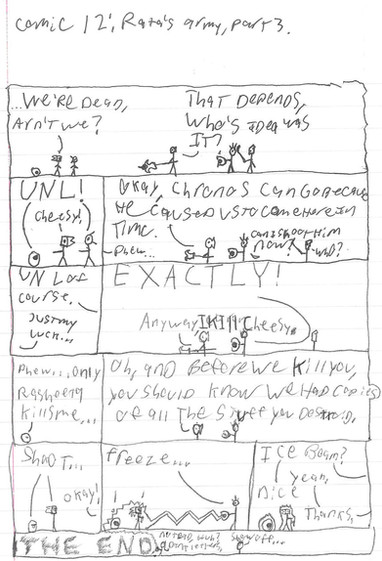 comic 12', Rata's army, part 3.
...We're Dead,
Arn't we?
That Depends,
Who's Idea was
IT?
UNL!
Cheesy!
Phew...
Okay, Chronos can Go
He caused us to come Here in
Time.
can I shoot Him
now?
UN Lof
course.
Just my
luck...
EXACTLY!
Anyway, I Kill Cheesy.
Phew... Only
kills me...
Oh, and Before we kill you,
you should know we Had copies
of all The Stuff you
Shoot...
okay!
freeze...
Show off...
ICE Beam?
yeah,
nice
Thanks,
THE END